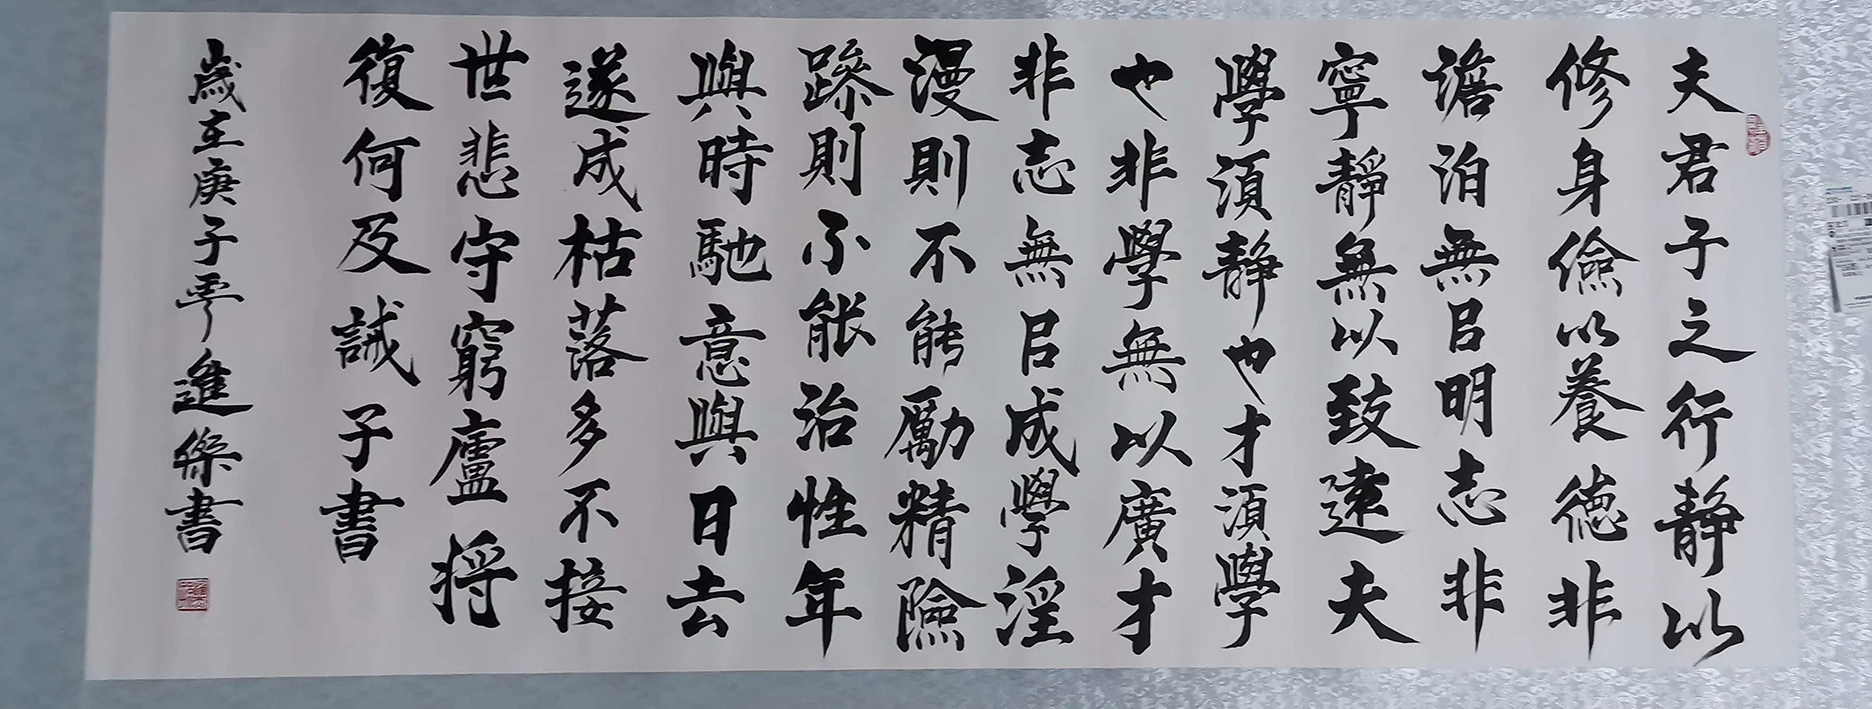 夫君子之行静以
修身儉以養德非
澹泊無㠯明志非
寧靜無以致遠夫
學須静也才須學
也非學無以廣才
非志無㠯成學淫
漫則不能勵精險
躁則不能治性年
與時馳意與日去
遂成枯落多不接
世悲守窮廬將
復何及誡子書
歲在庚子進傑書